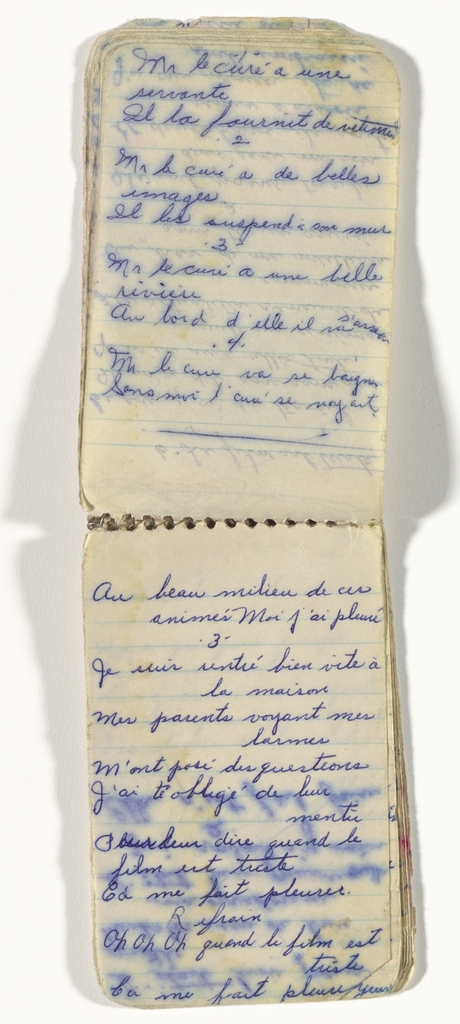 1
Mr le curé a une
servante
Il la fournit de
2
Mr le curé a de belles
images
Il les suspend à son mur
3
Mr le curé a une belle
rivière
Au bord d'elle il va s'assoir
4.
Mr le cure va se baigner
Sans moi l'curé se noyait
Au beau milieu de ces
animés Moi j'ai pleuré
3
Je suis rentré bien vite à
la maison
Mes parents voyant mes
larmes
M'ont posé des questions
J'ai été oblegé de leur
mentir
leur dire quand le
film est triste
Ça me fait pleurer.
Refrain
Oh Oh Oh quand le film est
triste
Ça me fait pleurer